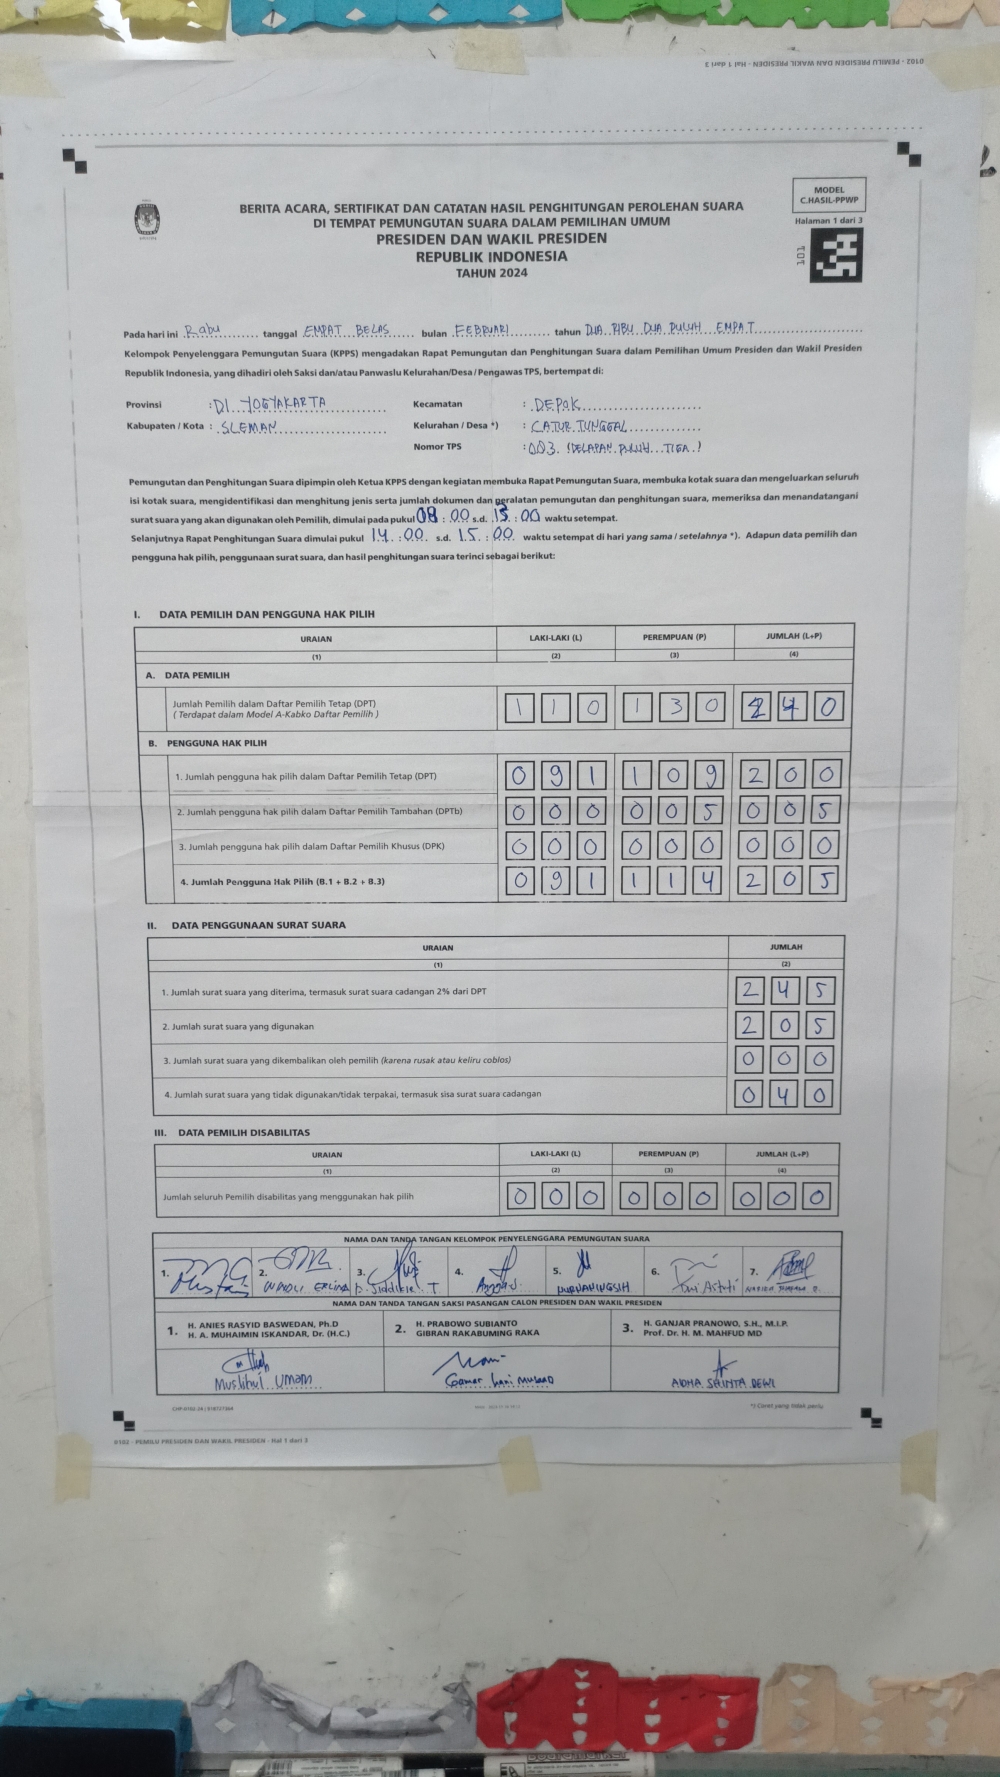 0102 - PEMILU PRESIDEN DAN WAKIL PRESIDEN - Hal 1 dari 3
MODEL
C.HASIL-PPWP
Halaman 1 dari 3
101
BERITA ACARA, SERTIFIKAT DAN CATATAN HASIL PENGHITUNGAN PEROLEHAN SUARA
DI TEMPAT PEMUNGUTAN SUARA DALAM PEMILIHAN UMUM
PRESIDEN DAN WAKIL PRESIDEN
REPUBLIK INDONESIA
TAHUN 2024
Pada hari ini Rabu tanggal EMPAT BELAS bulan FEBRUARI tahun DUA RIBU DUA PULUH EMPAT
Kelompok Penyelenggara Pemungutan Suara (KPPS) mengadakan Rapat Pemungutan dan Penghitungan Suara dalam Pemilihan Umum Presiden dan Wakil Presiden
Republik Indonesia, yang dihadiri oleh Saksi dan/atau Panwaslu Kelurahan/Desa / Pengawas TPS, bertempat di:
Provinsi : DI. YOGYAKARTA Kecamatan : DEPOK
Kabupaten / Kota : SLEMAN Kelurahan / Desa *) : CATUR TUNGGAL
Nomor TPS : 083 (DELAPAN PULUH TIGA)
Pemungutan dan Penghitungan Suara dipimpin oleh Ketua KPPS dengan kegiatan membuka Rapat Pemungutan Suara, membuka kotak suara dan mengeluarkan seluruh
isi kotak suara, mengidentifikasi dan menghitung jenis serta jumlah dokumen dan peralatan pemungutan dan penghitungan suara, memeriksa dan menandatangani
surat suara yang akan digunakan oleh Pemilih, dimulai pada pukul 08 : 00 s.d. 13 : 00 waktu setempat.
Selanjutnya Rapat Penghitungan Suara dimulai pukul 14 : 00 s.d. 15 : 00 waktu setempat di hari yang sama / setelahnya *). Adapun data pemilih dan
pengguna hak pilih, penggunaan surat suara, dan hasil penghitungan suara terinci sebagai berikut:
I. DATA PEMILIH DAN PENGGUNA HAK PILIH
URAIAN LAKI-LAKI (L) PEREMPUAN (P) JUMLAH (L+P)
(1) (2) (3) (4)
A. DATA PEMILIH
Jumlah Pemilih dalam Daftar Pemilih Tetap (DPT) 1 1 0 1 3 0 2 4 0
( Terdapat dalam Model A-Kabko Daftar Pemilih )
B. PENGGUNA HAK PILIH
1. Jumlah pengguna hak pilih dalam Daftar Pemilih Tetap (DPT) 0 9 1 1 0 9 2 0 0
2. Jumlah pengguna hak pilih dalam Daftar Pemilih Tambahan (DPTb) 0 0 0 0 0 5 0 0 5
3. Jumlah pengguna hak pilih dalam Daftar Pemilih Khusus (DPK) 0 0 0 0 0 0 0 0 0
4. Jumlah Pengguna Hak Pilih (B.1 + B.2 + B.3) 0 9 1 1 1 4 2 0 5
II. DATA PENGGUNAAN SURAT SUARA
URAIAN JUMLAH
(1) (2)
1. Jumlah surat suara yang diterima, termasuk surat suara cadangan 2% dari DPT 2 4 5
2. Jumlah surat suara yang digunakan 2 0 5
3. Jumlah surat suara yang dikembalikan oleh pemilih (karena rusak atau keliru coblos) 0 0 0
4. Jumlah surat suara yang tidak digunakan/tidak terpakai, termasuk sisa surat suara cadangan 0 4 0
III. DATA PEMILIH DISABILITAS
URAIAN LAKI-LAKI (L) PEREMPUAN (P) JUMLAH (L+P)
(1) (2) (3) (4)
Jumlah seluruh Pemilih disabilitas yang menggunakan hak pilih 0 0 0 0 0 0 0 0 0
NAMA DAN TANDA TANGAN KELOMPOK PENYELENGGARA PEMUNGUTAN SUARA
1. 2. 3. 4. 5. 6. 7.
PURWANINGSIH Tri Astuti
NAMA DAN TANDA TANGAN SAKSI PASANGAN CALON PRESIDEN DAN WAKIL PRESIDEN
1. H. ANIES RASYID BASWEDAN, Ph.D
H. A. MUHAIMIN ISKANDAR, Dr. (H.C.)
2. H. PRABOWO SUBIANTO
GIBRAN RAKABUMING RAKA
3. H. GANJAR PRANOWO, S.H., M.I.P.
Prof. Dr. H. M. MAHFUD MD
Muslihul Umam
AIDHA SHINTA DEWI
*) Coret yang tidak perlu
0102 - PEMILU PRESIDEN DAN WAKIL PRESIDEN - Hal 1 dari 3